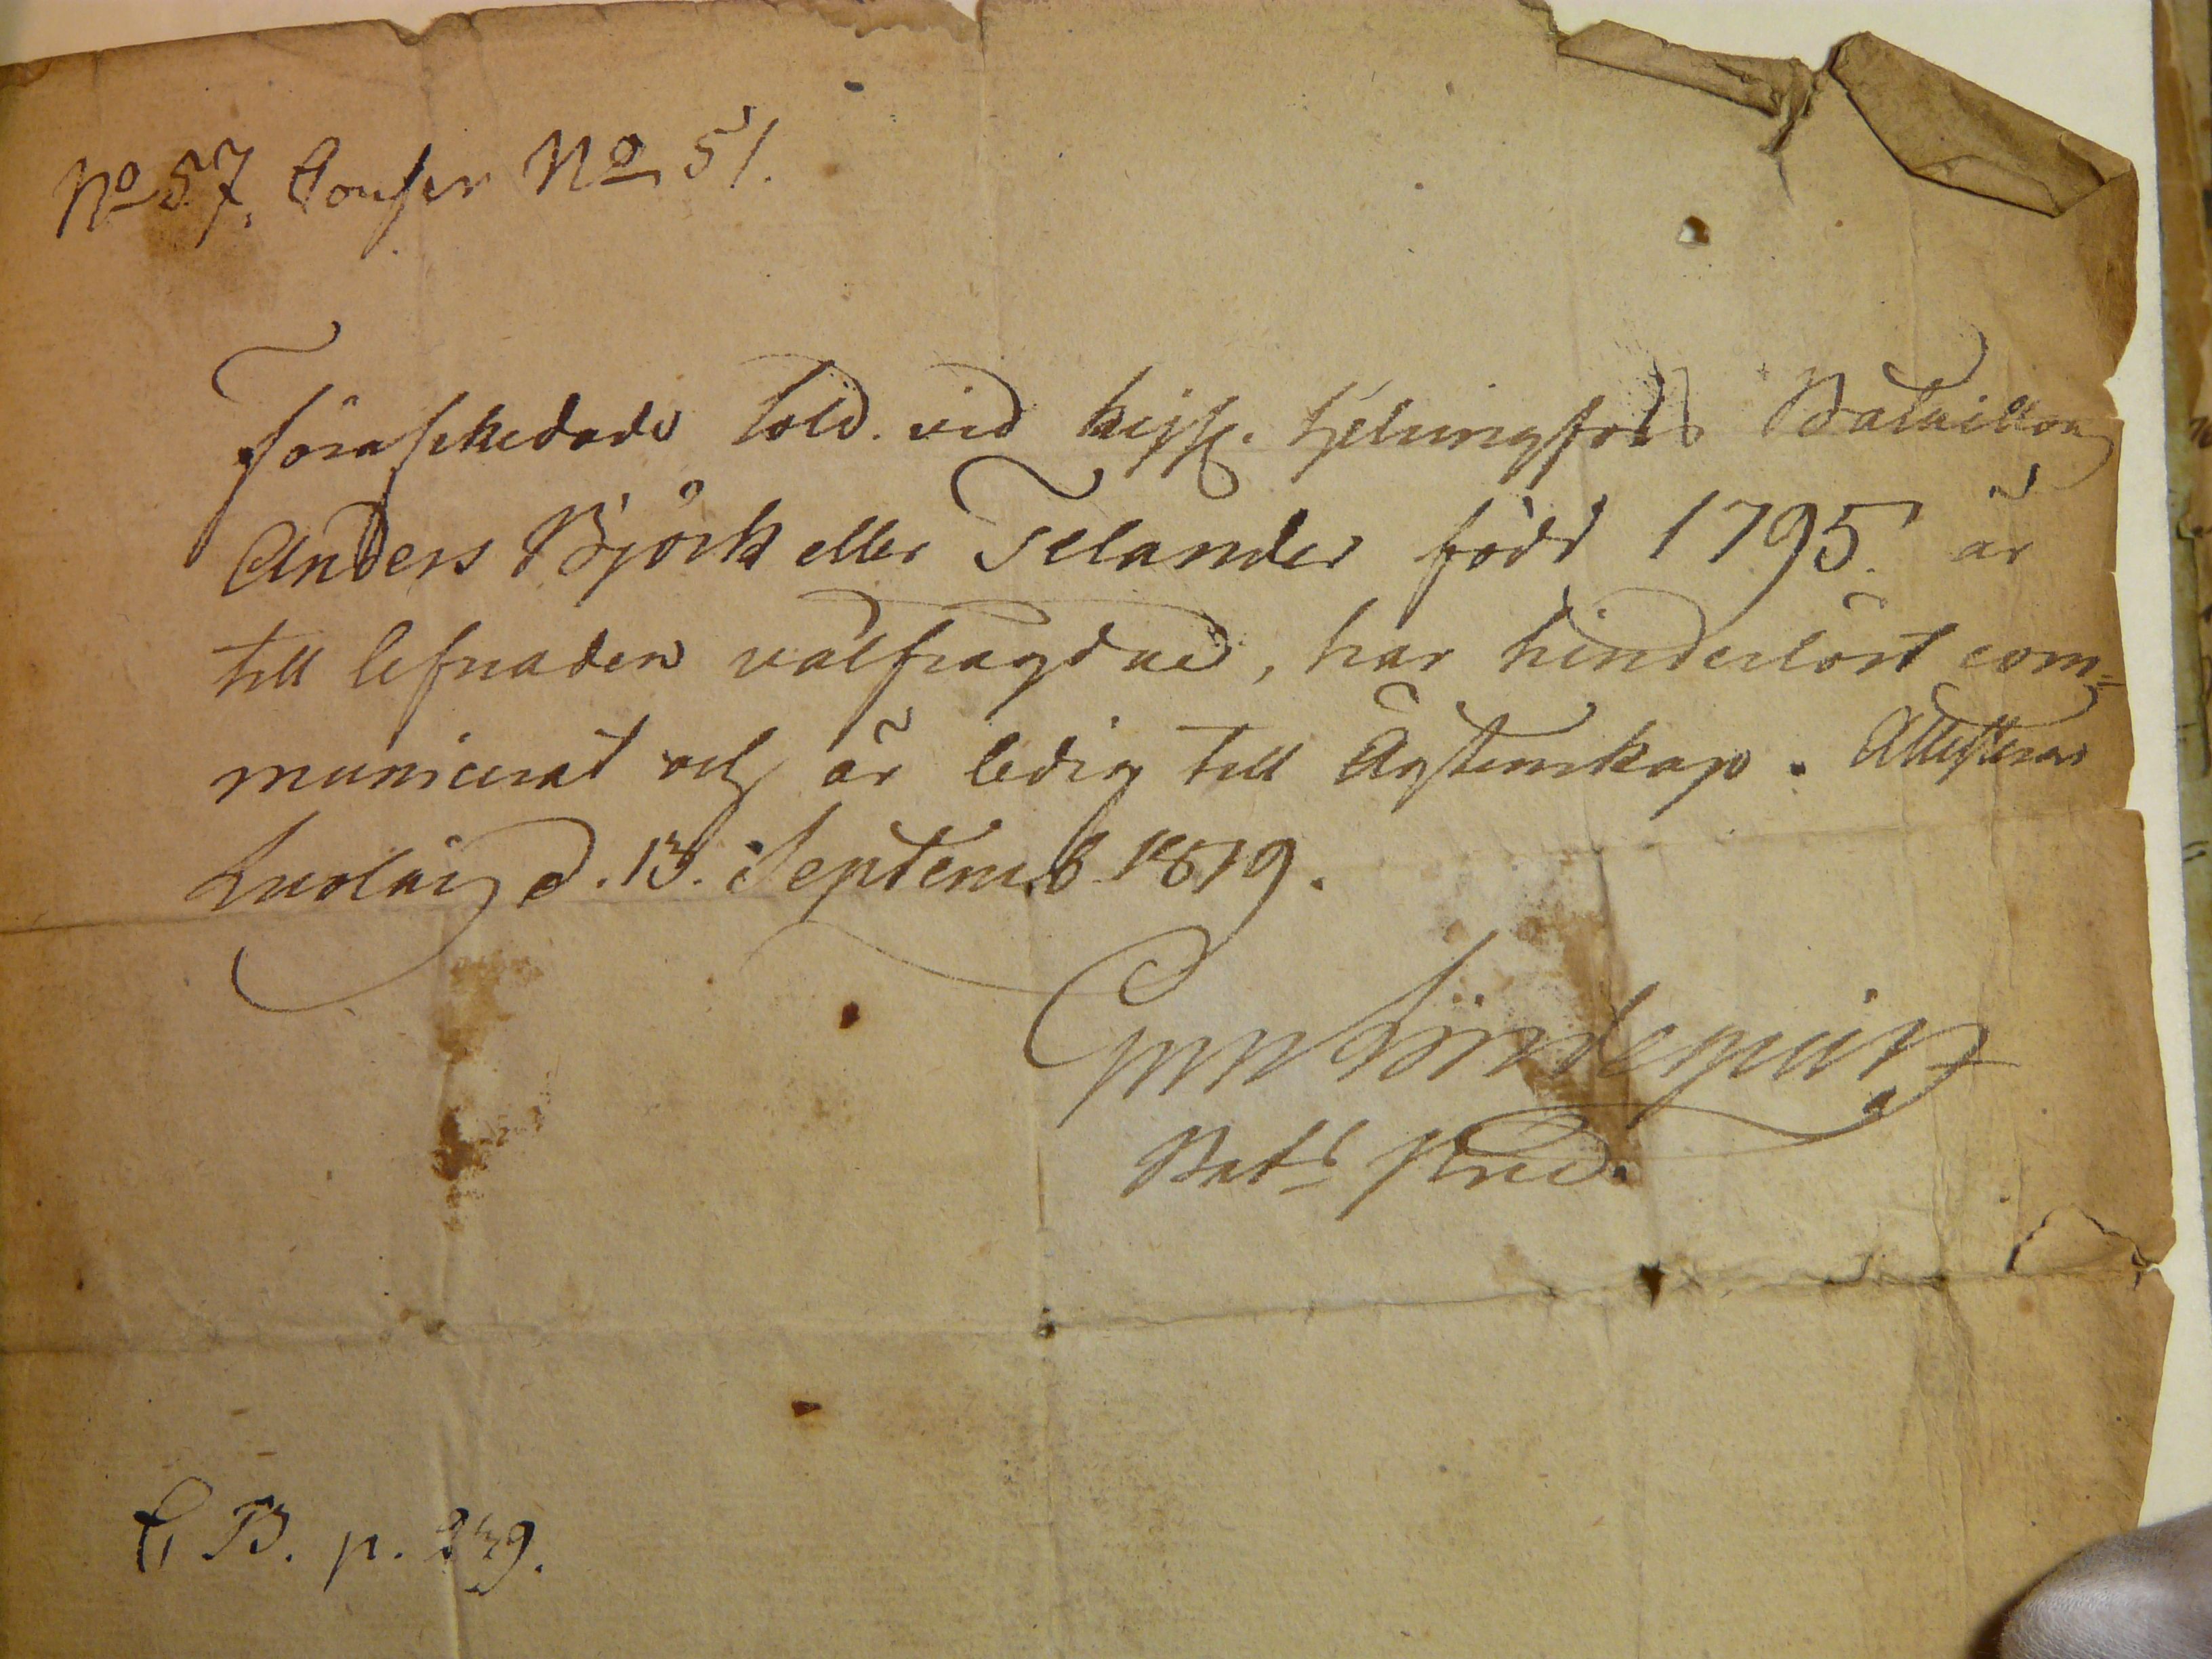 No 57. Confer No 51.
Förafskedade Sold. vid kejs. Helsingfors Bataillon
Anders Björk eller Telander född 1795. är
till lefnaden välfrägdad, har hinderlöst com=
municerat och är ledig till Ägtenskap. Attesterar
d. 13. Septemb 1819.
Bat: Pred.
C. B. p. 239.